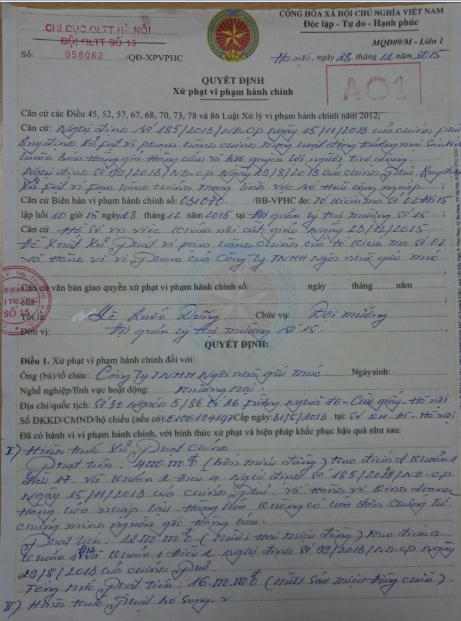 CHI CỤC QLTT HÀ NỘI
ĐỘI QLTT SỐ 15
Số: 058062 /QĐ-XPVPHC
CỘNG HÒA XÃ HỘI CHỦ NGHĨA VIỆT NAM
Độc lập - Tự do - Hạnh phúc
MQĐ09/M - Liên 1
Hà Nội, ngày 28 tháng 12 năm 2015
A01
QUYẾT ĐỊNH
Xử phạt vi phạm hành chính
Căn cứ các Điều 45, 52, 57, 67, 68, 70, 73, 78 và 86 Luật Xử lý vi phạm hành chính năm 2012;
Căn cứ: Nghị định số 185/2013/NĐ-CP ngày 15/11/2013 của chính phủ
Quy định xử phạt vi phạm hành chính trong hoạt động thương mại, sản xuất
buôn bán hàng giả, hàng cấm và bảo vệ quyền lợi người tiêu dùng
Nghị định số 99/2013/NĐ-CP ngày 29/8/2013 của chính phủ. Quy định
xử phạt vi phạm hành chính trong lĩnh vực sở hữu công nghiệp.
Căn cứ Biên bản vi phạm hành chính số: /BB-VPHC do: Tổ kiểm tra số
lập hồi 10 giờ 15 ngày 23 tháng 12 năm 2015 tại Đội quản lý thị trường số 15
Căn cứ Hồ sơ vụ việc ngày
Đề xuất xử phạt vi phạm hành chính của tổ kiểm tra số 02
về hành vi vi phạm của Công ty TNHH Ngôi nhà gấu trúc
Căn cứ văn bản giao quyền xử phạt vi phạm hành chính số: ngày tháng năm
Tôi là: Lê Quốc Dũng Chức vụ: Đội trưởng
Đơn vị: Đội quản lý thị trường số 15
QUYẾT ĐỊNH:
Điều 1. Xử phạt vi phạm hành chính đối với:
Ông (bà)/tổ chức: Công ty TNHH Ngôi nhà gấu trúc Ngày sinh:
Nghề nghiệp/lĩnh vực hoạt động: Thương mại
Địa chỉ/quốc tịch: Số 30 Ngách 5/86 Cầu giấy - Hà nội
Số ĐKKD/CMND/hộ chiếu (nếu có): Cấp ngày tại: Sở KH-ĐT - Hà nội
Đã có hành vi vi phạm hành chính, với hình thức xử phạt và biện pháp khắc phục hậu quả như sau:
I) Hình thức xử phạt chính
Phạt tiền: 4.000.000đ (bốn triệu đồng) theo điểm d khoản 1
điều 17 và khoản 2 điều 4 Nghị định số 185/2013/NĐ-CP.
Ngày 15/11/2013 của chính Phủ. Về hành vi kinh doanh
hàng hóa nhập lậu. Hàng hóa không có hóa đơn chứng từ
chứng minh nguồn gốc hàng hóa.
Phạt tiền: 12.000.000đ (mười hai triệu đồng) theo điểm a
khoản và khoản 1 điều 2 nghị định số 99/2013/NĐ-CP ngày
29/8/2013 của chính Phủ.
Tổng mức phạt tiền: 16.000.000đ (mười sáu triệu đồng chẵn).
II) Hình thức phạt bổ sung